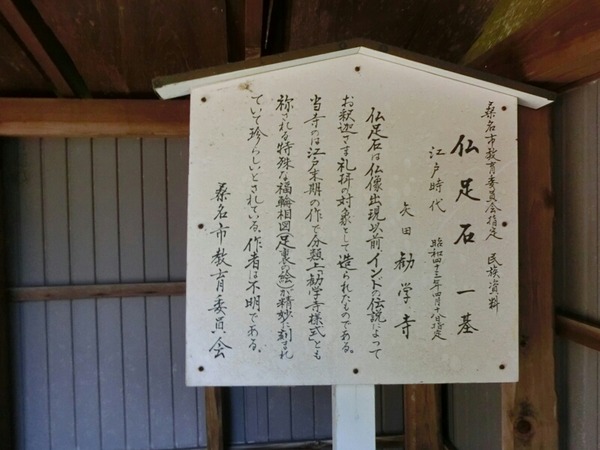 桑名市教育委員会指定 民族資料
仏足石 一基
江戸時代 昭和四十三年四月十八日指定
矢田 勧学寺
仏足石は仏像出現以前インドの伝説によって
お釈迦さま礼拝の対象として造られたものである。
当寺のは江戸末期の作で分類上「勧学寺様式」とも
称される特殊な福輪相図(足裏の絵)が精妙に刻まれ
ていて珍らしいとされている。作者は不明である。
桑名市教育委員会